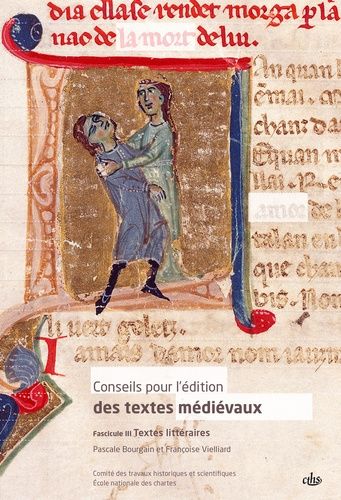 dia ella se render morga p la
nao de la mort de lui.
An quan l
chanz da
E quan m
amor de l
talan en
que chan
bis. Non
amais damor nom iau
Conseils pour l'édition
des textes médiévaux
Fascicule III Textes littéraires
Pascale Bourgain et Françoise Vielliard
Comité des travaux historiques et scientifiques
École nationale des chartes
cths